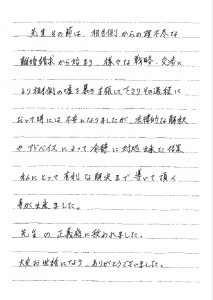 先生、この節は、相手側からの理不尽な
離婚請求から始まり様々な戦略、交渉に
より相手側の嘘を暴き主張して下さりその過程に
おいて時には不安になりましたが、法律的な解釈
やアドバイスによって冷静に対処出来た結果
私にとって有利な解決まで導いて頂く
事が出来ました。
先生の正義感に救われました。
大変お世話になりありがとうございました。